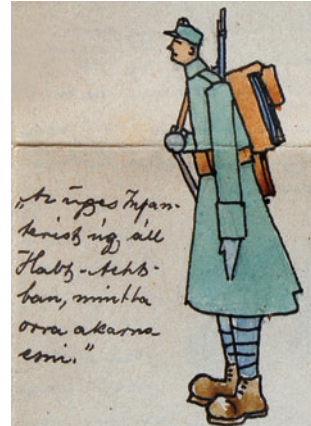 „Az ügyes Infan-
terist úgy áll
Habt-Acht-
ban, mintha
orra akarna
esni."